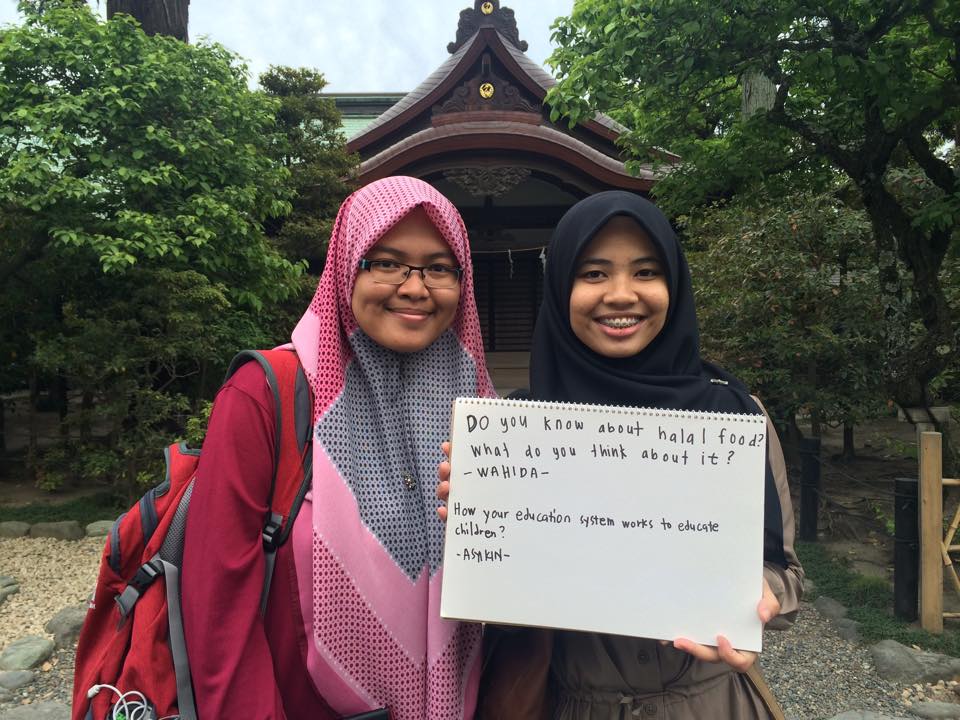 Do you know about halal food?
What do you think about it?
-WAHIDA-
How your education system works to educate
children?
-ASYIKIN-